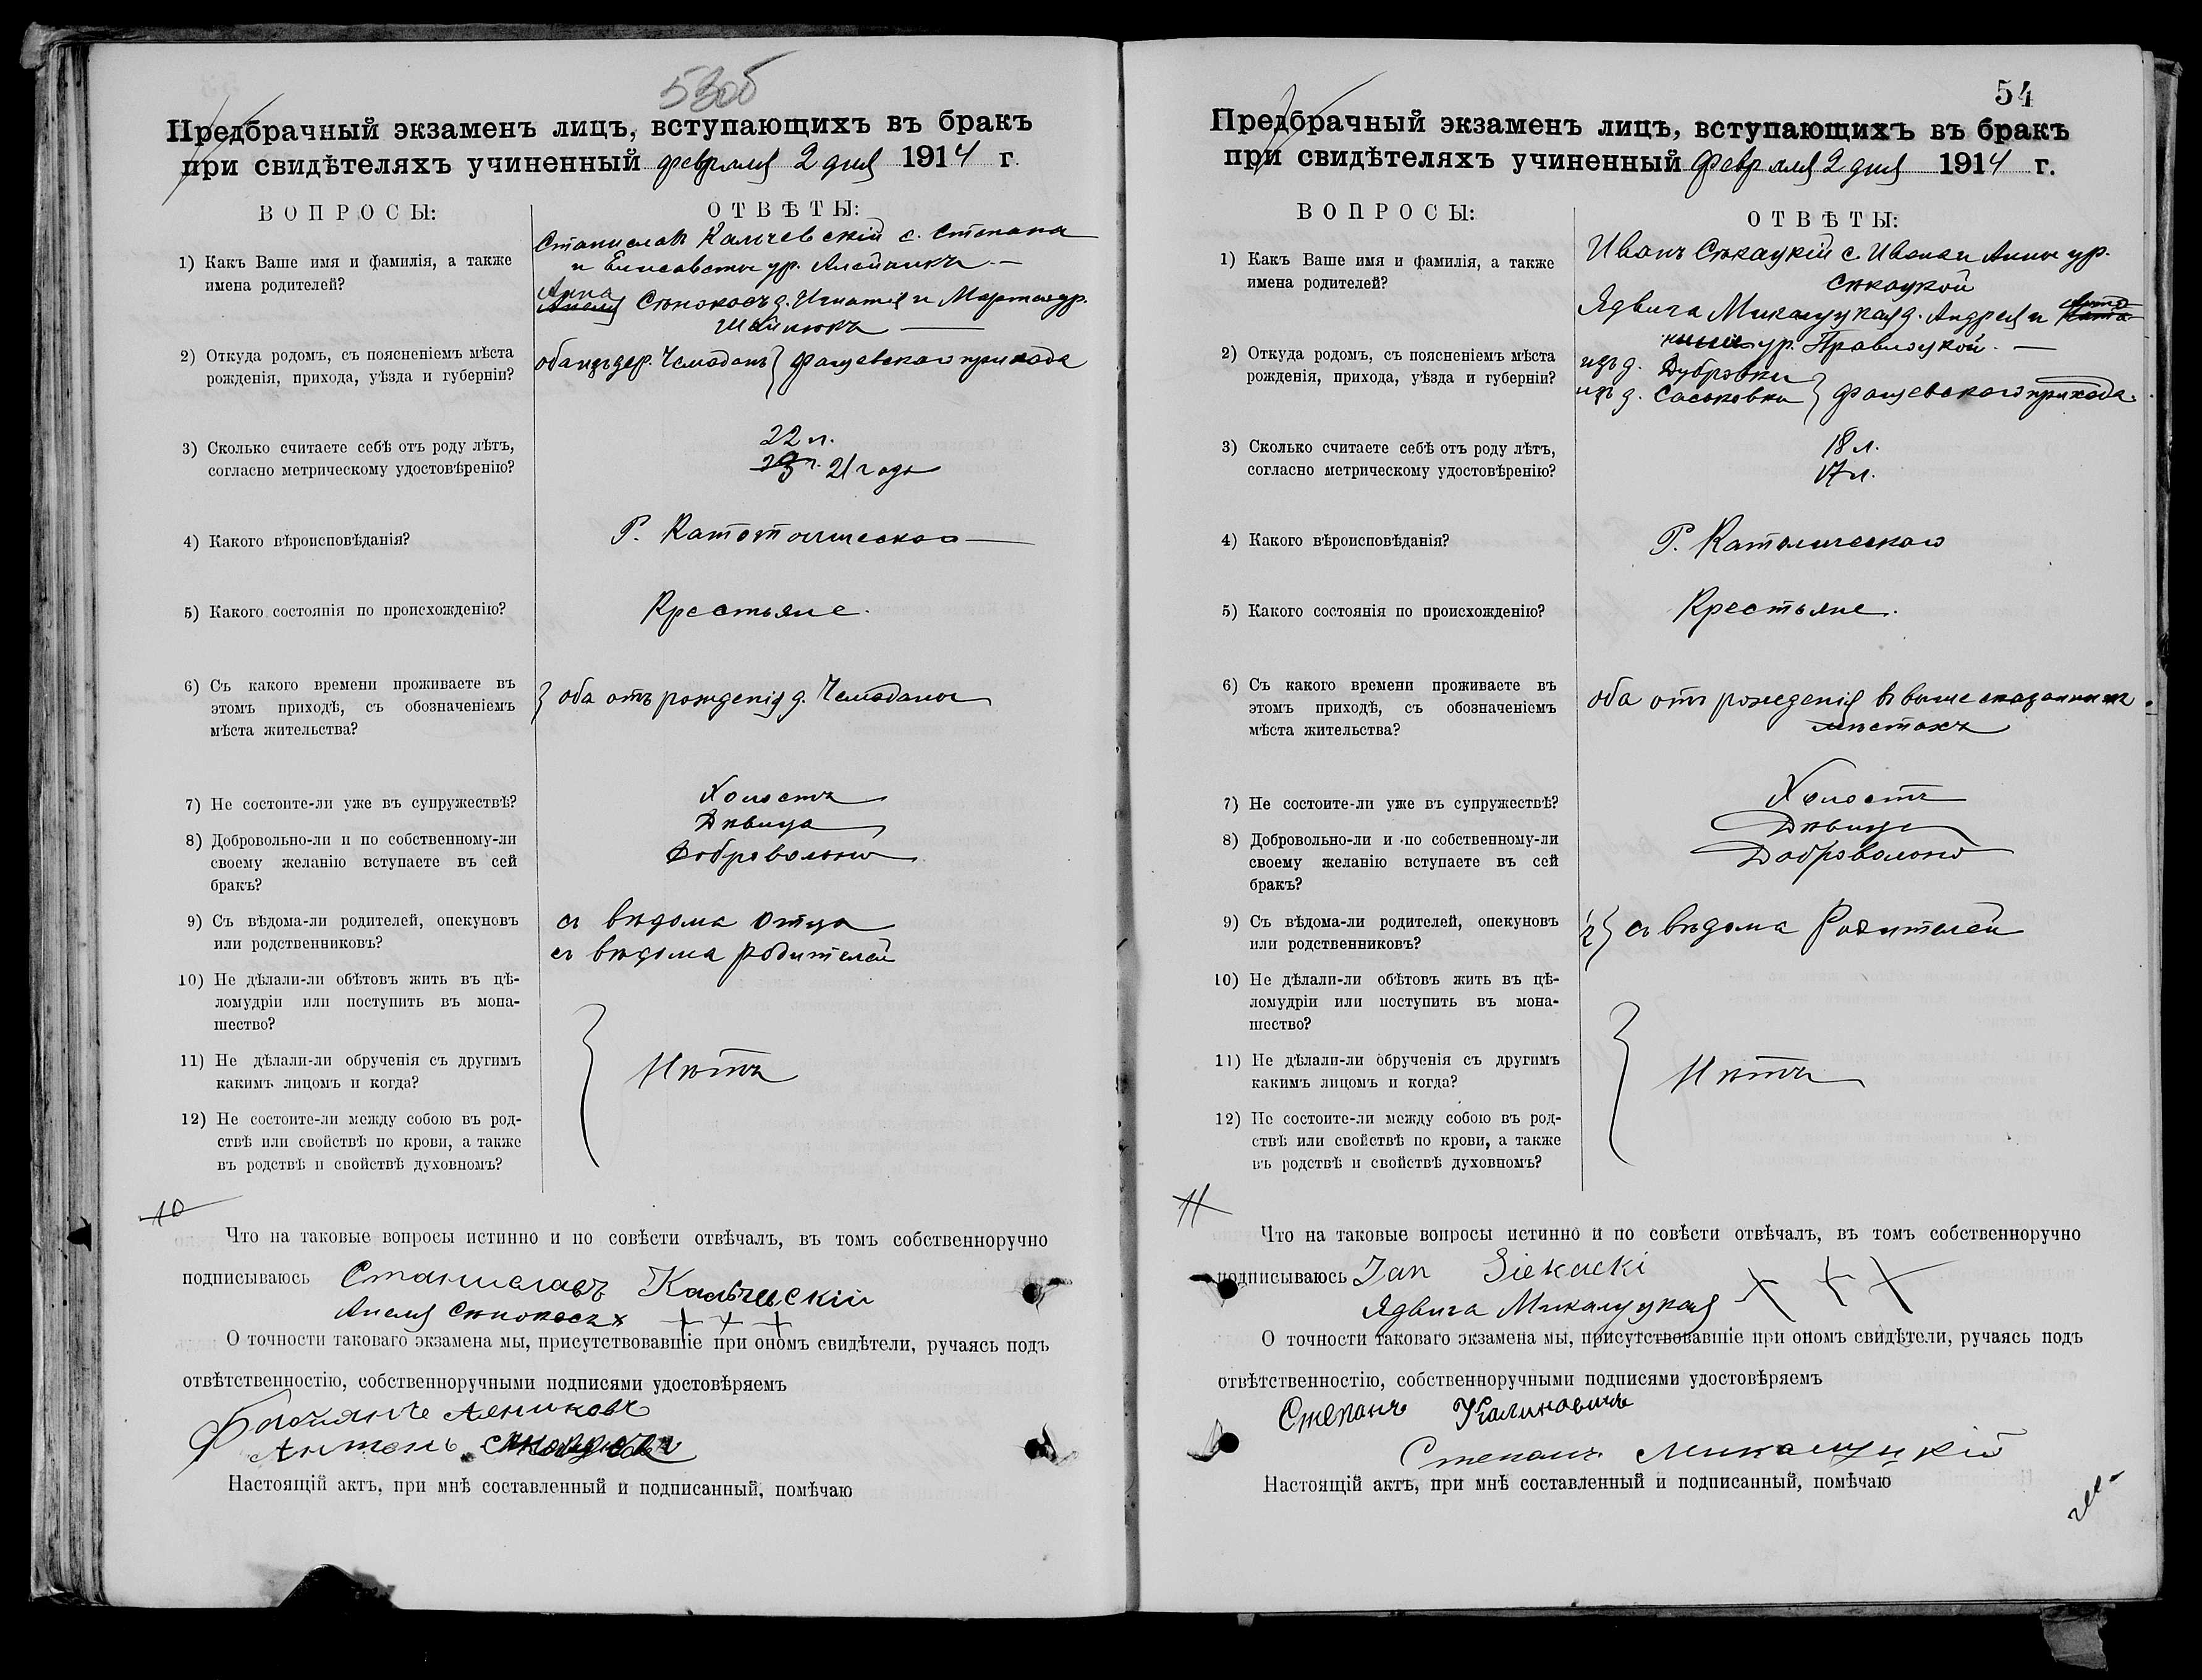 53об
Предбрачный экзаменъ лицъ, вступающихъ въ бракъ
при свидѣтеляхъ учиненный февраля 2 дня 1914 г.
ВОПРОСЫ:
ОТВѢТЫ:
1) Какъ Ваше имя и фамилія, а также
имена родителей?
Станиславъ Кальчевскій с. Степана
и Елисаветы ур.
Анна
Анеля Сѣнокосъ д. Игнатія и Марты ур.
2) Откуда родомъ, съ поясненіемъ мѣста
рожденія, прихода, уѣзда и губерніи?
оба изъ дер. Чемоданъ } фащевскаго прихода
3) Сколько считаете себѣ отъ роду лѣтъ,
согласно метрическому удостовѣренію?
22 л.
21 года
4) Какого вѣроисповѣданія?
Р. Кататолическаго
5) Какого состоянія по происхожденію?
Крестьяне.
6) Съ какого времени проживаете въ
этомъ приходѣ, съ обозначеніемъ
мѣста жительства?
} оба отъ рожденія д. Чемоданы
7) Не состоите-ли уже въ супружествѣ?
Холостъ
Дѣвица
8) Добровольно-ли и по собственному-ли
своему желанію вступаете въ сей
бракъ?
Добровольно
9) Съ вѣдома-ли родителей, опекуновъ
или родственниковъ?
съ вѣдома отца
съ вѣдома родителей
10) Не дѣлали-ли обѣтовъ жить въ цѣ-
ломудріи или поступить въ мона-
шество?
11) Не дѣлали-ли обрученія съ другимъ
какимъ лицомъ и когда?
Нѣтъ
12) Не состоите-ли между собою въ род-
ствѣ или свойствѣ по крови, а также
въ родствѣ и свойствѣ духовномъ?
10
Что на таковые вопросы истинно и по совѣсти отвѣчалъ, въ томъ собственноручно
подписываюсь Станиславъ Кальчевскій
Анеля Сѣнокосъ + + +
О точности таковаго экзамена мы, присутствовавшіе при ономъ свидѣтели, ручаясь подъ
отвѣтственностію, собственноручными подписями удостовѣряемъ
Антонъ
Настоящій актъ, при мнѣ составленный и подписанный, помѣчаю
54
Предбрачный экзаменъ лицъ, вступающихъ въ бракъ
при свидѣтеляхъ учиненный февраля 2 дня 1914 г.
ВОПРОСЫ:
ОТВѢТЫ:
1) Какъ Ваше имя и фамилія, а также
имена родителей?
Иванъ Сѣкацкій с. Ивана и Анны ур.
Сѣкацкой
Ядвига Микалуцкая д. Андрея и
ур. Правлоцкой.
2) Откуда родомъ, съ поясненіемъ мѣста
рожденія, прихода, уѣзда и губерніи?
изъ д. Дубровки
изъ д. Сасоковки } фащевскаго прихода.
3) Сколько считаете себѣ отъ роду лѣтъ,
согласно метрическому удостовѣренію?
18 л.
17 л.
4) Какого вѣроисповѣданія?
Р. Католическаго
5) Какого состоянія по происхожденію?
Крестьяне.
6) Съ какого времени проживаете въ
этомъ приходѣ, съ обозначеніемъ
мѣста жительства?
оба отъ рожденія въ вышесказанныхъ
мѣстахъ
7) Не состоите-ли уже въ супружествѣ?
Холостъ
Дѣвица
8) Добровольно-ли и по собственному-ли
своему желанію вступаете въ сей
бракъ?
Добровольно
9) Съ вѣдома-ли родителей, опекуновъ
или родственниковъ?
1 2 } съ вѣдома Родителей
10) Не дѣлали-ли обѣтовъ жить въ цѣ-
ломудріи или поступить въ мона-
шество?
11) Не дѣлали-ли обрученія съ другимъ
какимъ лицомъ и когда?
Нѣтъ
12) Не состоите-ли между собою въ род-
ствѣ или свойствѣ по крови, а также
въ родствѣ и свойствѣ духовномъ?
11
Что на таковые вопросы истинно и по совѣсти отвѣчалъ, въ томъ собственноручно
подписываюсь Jan Siekacki
Ядвига Микалуцкая + + +
О точности таковаго экзамена мы, присутствовавшіе при ономъ свидѣтели, ручаясь подъ
отвѣтственностію, собственноручными подписями удостовѣряемъ
Степанъ Калиновичъ
Степанъ Микалуцкій
Настоящій актъ, при мнѣ составленный и подписанный, помѣчаю